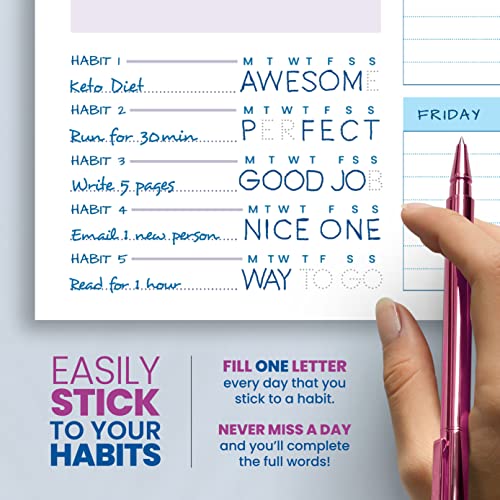 HABIT 1 M T W T F S S
Keto Diet AWESOME
HABIT 2 M T W T F S S
Run for 30 min PERFECT
HABIT 3 M T W T F S S
Write 5 pages GOOD JOB
HABIT 4 M T W T F S S
Email 1 new person NICE ONE
HABIT 5 M T W T F S S
Read for 1 hour WAY TO GO
FRIDAY
EASILY
STICK
TO YOUR
HABITS
FILL ONE LETTER
every day that you
stick to a habit.
NEVER MISS A DAY
and you'll complete
the full words!